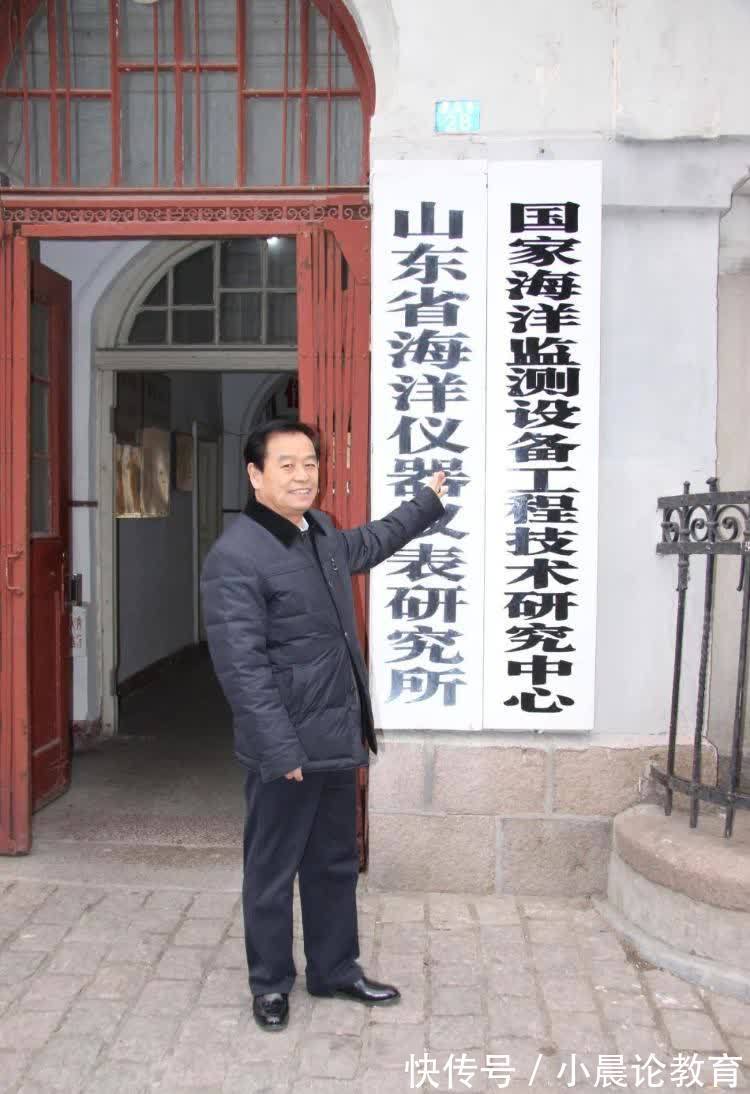 28
山东省海洋仪器仪表研究所
国家海洋监测设备工程技术研究中心
快传号 / 小晨论教育